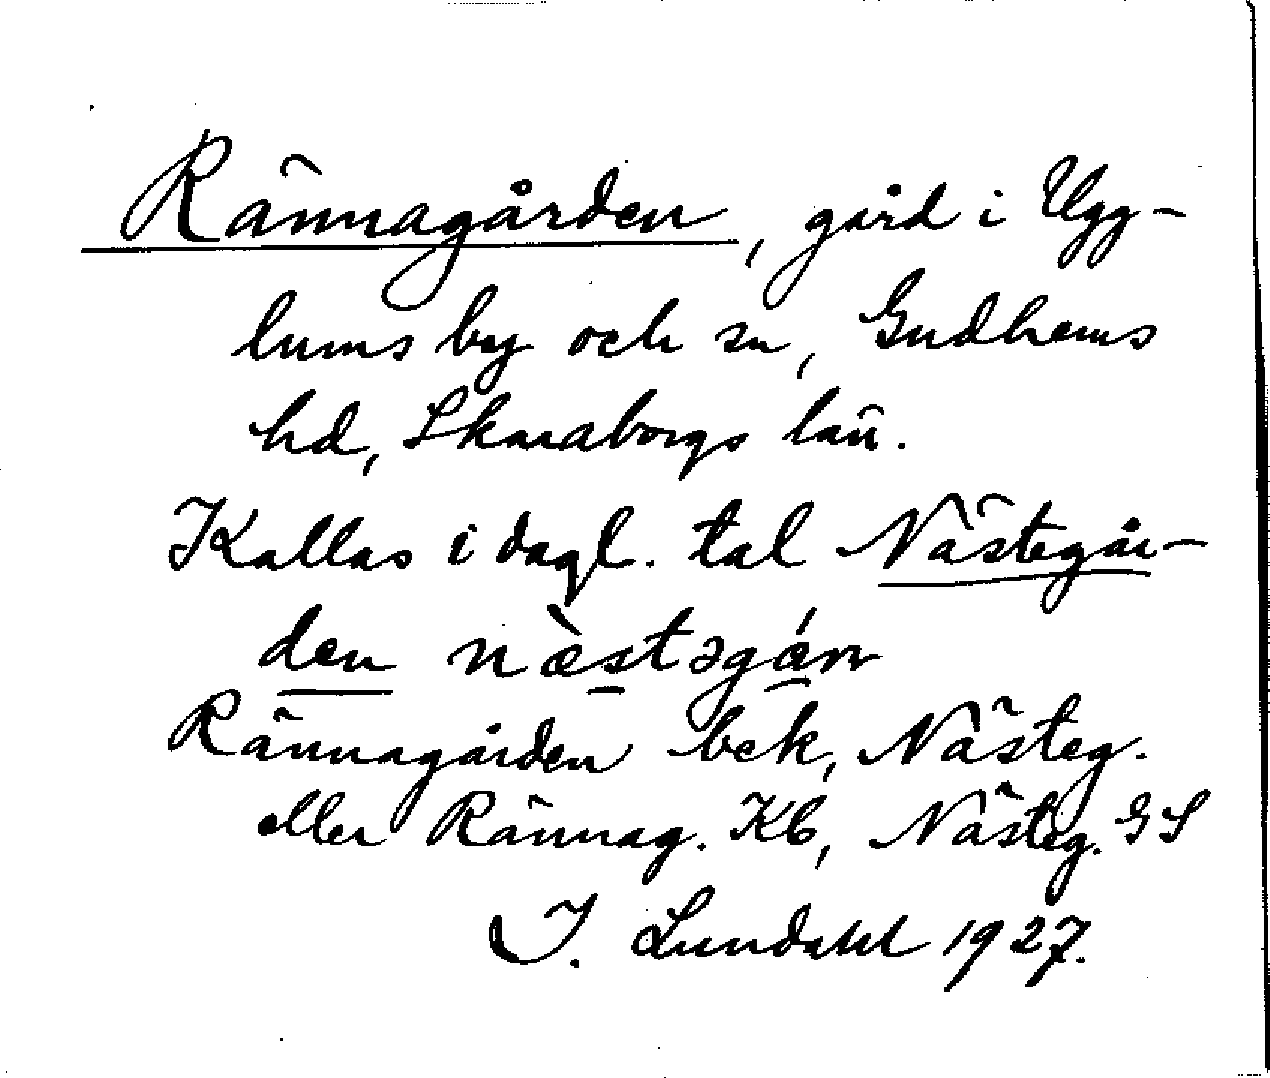 Rännagården, gård i Ugg-
lums by och sn, Gudhems
hd, Skaraborgs län.
Kallas i dagl. tal Nästegår-
den næ̀stəgɑ́ɳ
Rännagården bek, Nästeg.
eller Rännag. Kb, Nästeg. GS
I. Lundahl 1927.